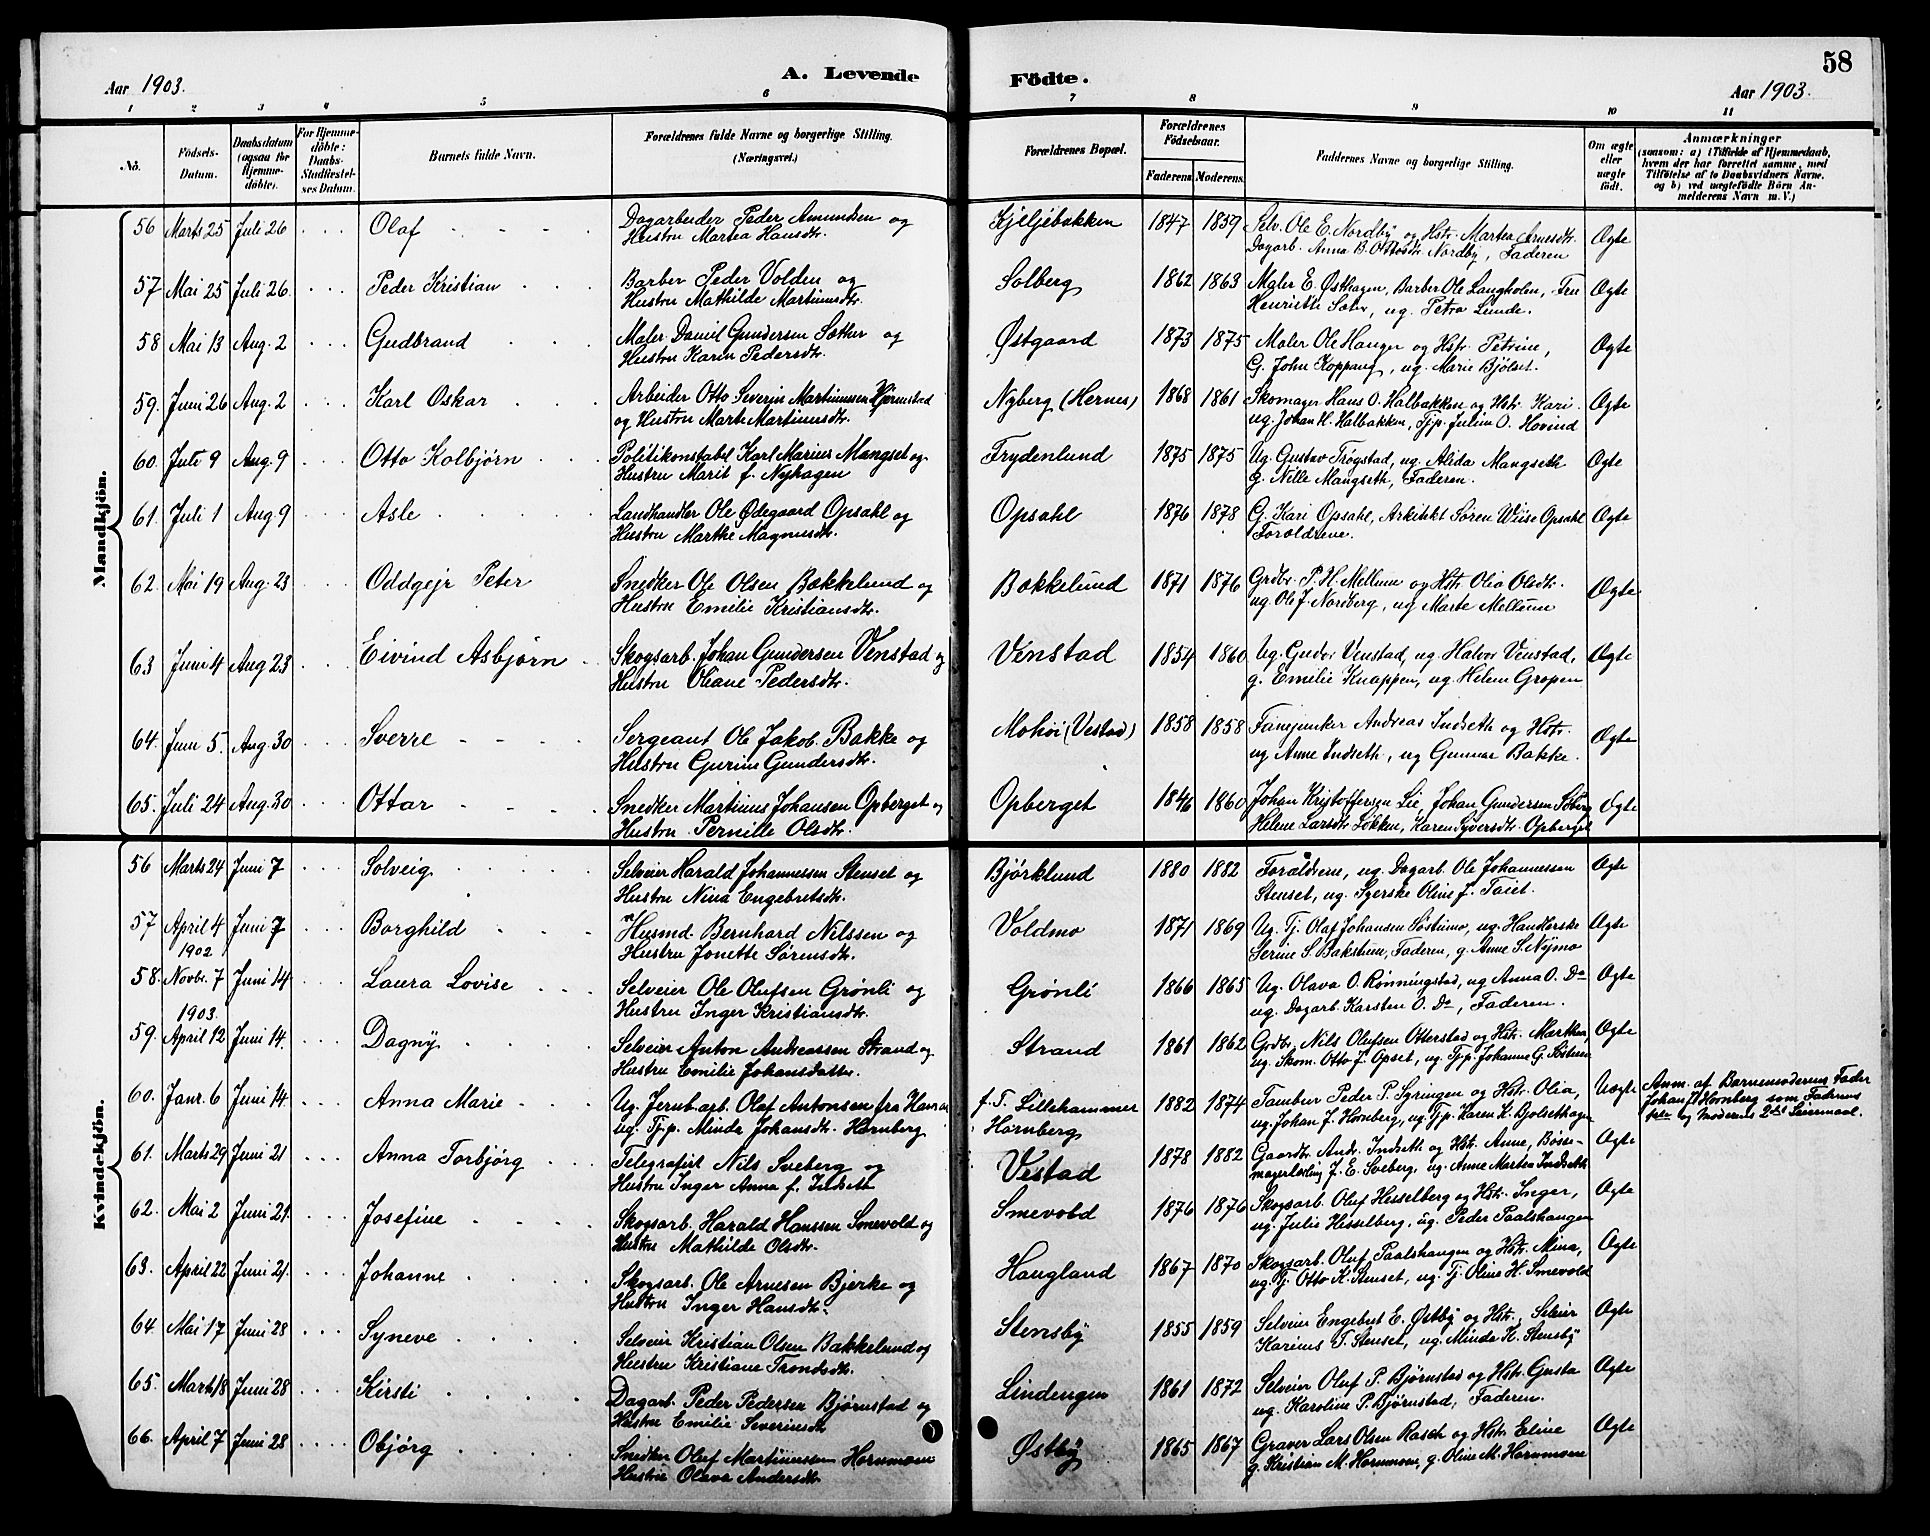 58
Aar 1903.
A. Levende
Födte.
Aar 1903.
1 2 3 4 5 6 7 8 9 10 11
No.
Födsels-
Datum.
Daabsdatum
(ogsaa for
Hjemme-
döbte).
For Hjemme-
döbte:
Daabs-
Stadfæstel-
ses Datum.
Barnets fulde Navn.
Forældrenes fulde Navne og borgerlige Stilling.
(Næringsvei.)
Forældrenes Bopæl.
Forældrenes
Födselsaar.
Faderens. Moderens.
Faddernes Navne og borgerlige Stilling.
Om ægte
eller
uægte
födt.
Anmærkninger
(saasom: a) i Tilfælde af Hjemmedaab,
hvem der har forrettet samme, med
Tilföielse af to Daabsvidners Navne,
og b) ved uægtefödte Börn An-
melderens Navn m. V.)
Mandkjön.
56 Marts 25 Juli 26 Olaf Dagarbeider Peder Amundsen og Kjeljebakken 1847 1859 Selv. Ole E. Nordby og Hstr. Martea Arnesdtr. Ægte
Hustru Martea Hansdtr. Dagarb. Anna B. Ottosdtr Nordby, Faderen
57 Mai 25 Juli 26 Peder Kristian Barber Peder Volden og Solberg 1862 1863 Maler E. Østhagen, Barber Ole Langholen, Fru Ægte
Hustru Mathilde Martinusdtr. Henriette Sæter, ug. Petra Lunde.
58 Mai 13 Aug. 2 Gudbrand Maler Daniel Gundersen Sæther og Østgaard 1873 1875 Maler Ole Hanger og Hstr. Petrine, Ægte
Hustru Karen Pedersdtr. G. John Koppang, ug. Marie Bjölset.
59. Juni 26 Aug. 2 Karl Oskar Arbeider Otto Severin Martinussen Hjørnstad Nyberg (Hernes) 1868 1861 Skomager Hans O. Halbakken og Hst. Kari. Ægte
og Hustru Marte Martinusdtr. ug. Johan H. Halbakken, Tjp. Juline O. Hovind
60. Juli 9 Aug. 9 Otto Kolbjørn Politikonstabel Karl Marius Mangset og Frydenlund 1875 1875 Ug. Gustav Trøgstad, ug. Alida Mangseth Ægte
Hustru Marit f. Nyhagen g. Nille Mangseth, Faderen.
61. Juli 1 Aug. 9 Asle Landhandler Ole Ødegaard Opsahl og Opsahl 1876 1878 G. Kari Opsahl, Arkitekt Søren Wiise Opsahl Ægte
Hustru Marthe Magnusdtr. Forældrene.
62. Mai 19 Aug. 23 Oddgejr Peter Snedker Ole Olsen Bækkelund og Bækkelund 1871 1876 Grdbr. P. H. Mellum og Hst. Olia Olsdtr. Ægte
Hustru Emilie Kristiansdtr. ug. Ole J. Nordberg, ug Marte Mellum
63 Juni 4 Aug 23 Eivind Asbjørn Skogsarb. Johan Gundersen Venstad og Venstad 1854 1860 Ug. Gudor Venstad, ug. Halvor Venstad, Ægte
Hustru Oleane Pedersdtr. g. Emilie Knappen, ug. Helene Gropen
64. Juni 5. Aug. 30 Sverre Sergeant Ole Jakob Bakke og Mohöi (Vestad) 1858 1858 Fanejunker Andreas Indseth og Hstr. Ægte
Hustru Gurine Gundersdtr. ug Anne Indseth, ug Gunnar Bakke.
65. Juli 24 Aug. 30 Ottar Snedker Martinus Johansen Opberget og Opberget 1846 1860 Johan Kristoffersen Lie, Johan Gundersen Søberg Ægte
Hustru Pernille Olsdtr. Helene Larsdtr Løkken, Karen Syversdtr Opberget
Kvindekjön.
56 Marts 24 Juni 7 Solveig Selveier Harald Johannessen Stenset og Bjørklund 1880 1882 Forældrene, ug. Dagarb. Ole Johannessen Ægte
Hustru Nina Engebretsdtr. Stenset, ug. Syerske Oline J. Taiet.
57 April 4 Juni 7 Borghild Husmd. Bernhard Nilssen og Voldmo 1871 1869 Ug. Tj. Olaf Johansen Søstumo, ug. Handlerske Ægte
Hustru Jonette Sørensdtr. Serine S. Bakstuen, Faderen, g. Anne S. Nymo
1902
58. Novbr. 7 Juni 14 Laura Lovise Selveier Ole Olufsen Grønli og Grønli 1866 1865 Ug. Olava O. Rønningstad, ug Anna O. Do Ægte
Hustru Inger Kristiansdtr. ug. Dagarb. Karsten O. Do, Faderen.
1903.
59. April 12 Juni 14. Dagny Selveier Anton Andreassen Strand og Strand 1861 1862 Grdbr. Nils Olufsen Otterstad og Hst. Marthea, Ægte
Hustru Emilie Johansdatter. ug. Skom. Otto J. Opset, ug. Tjp. Johanne G.
60. Janr. 6 Juni 14 Anna Marie Ug. Jernb.arb. Olaf Antonsen fra Hamar f. T. Lillehammer 1882 1874 Tambur Peder P. Syringen og Hstr. Olia, Uægte Anm. af Barnemoderens Fader
ug. Tjp. Minda Johansdtr. Hornberg Hornberg ug. Johan J. Hornberg, ug. Tjp. Karen K. Bjolsethagen Johan P. Hornberg som Faderens
og Moderens 2det Leiermaal.
61. Marts 29 Juni 21 Anna Torbjörg Telegrafist Nils Sveberg og Vestad 1878 1882 Gaardbr. Andr. Indseth og Hst. Anne, Bøsse- Ægte
Hustru Inger Anna f. Indseth magerlærling J. E. Sveberg, ug. Anne Martea Indseth
62. Mai 2 Juni 21. Josefine Skogsarb. Harald Hanssen Smevold og Smevold 1876 1876 Skogsarb. Oluf Hesselberg og Hst. Inger, Ægte
Hustru Mathilde Olsdtr. ug. Julie Hesselberg, ug. Peder Paalshaugen
63. April 22 Juni 21. Johanne Skogsarb. Ole Arnesen Bjerke og Haugland 1867 1870 Skogsarb. Oluf Paalshaugen og Hst. Mina, Ægte
Hustru Inger Hansdtr. ug. Tj. Otto K. Stenset, ug. Tj. Oline H. Smevold
64. Mai 17 Juni 28 Syneve Selveier Kristian Olsen Bakkelund og Stensby 1855 1859 Selveier Engebret E. Østby og Hst, Selveier Ægte
Hustru Kristiane Trondsdtr. Karinus T. Stenset, ug. Minda K. Stensby
65. Marts 18 Juni 28 Kirsti Dagarb. Peder Pedersen Bjørnstad og Lindengen 1861 1872 Selveier Oluf P. Bjørnstad og Hstr. Gusta Ægte
Hustru Emilie Severinsdtr ug. Karoline P. Bjørnstad, Faderen.
66. April 7 Juni 28 Objörg Snedker Oluf Martinussen Hornmoen Østby 1865 1867 Graver Lars Olsen Rasch og Hstr. Eline Ægte
Hustru Olava Andersdtr g. Kristian M. Hornmoen, g. Oline M. Hornmoen